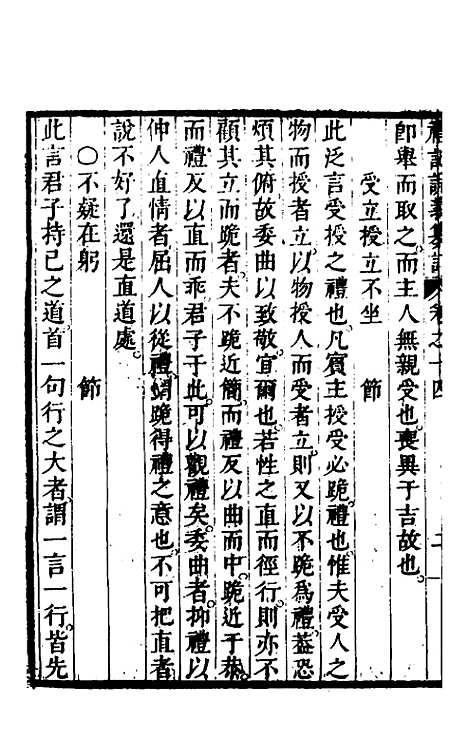 卽舉而取之而主人無親受也喪異于吉故也
受立授立不坐　節
此泛言受授之禮也凡賓主授受必跪禮也惟夫受人之
物而授者立以物授人而受者立則又以不跪爲禮葢恐
煩其俯故委曲以致敬宜爾也若性之直而徑行則亦不
顧其立而跪者夫不跪近簡而禮反以曲而中跪近于恭
而禮反以直而乖君子于此可以觀禮矣委曲者抑禮以
仲人直情者屈人以從禮蜎跪得禮之意也不可把直者
說不好了還是直道處
○不疑在躬　節
此言君子持己之道首一句行之大者謂一言一行皆先